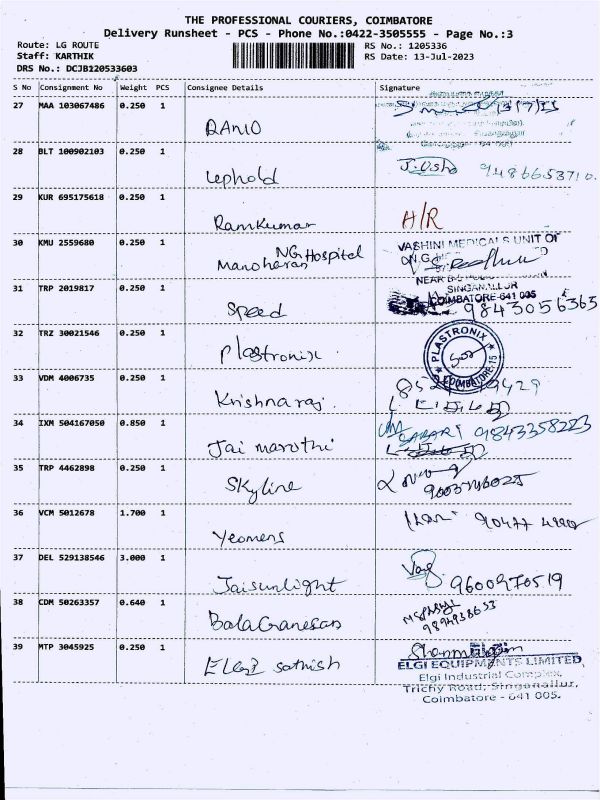 THE PROFESSIONAL COURIERS, COIMBATORE
Delivery Runsheet - PCS - Phone No.:0422-3505555 - Page No.:3
Route: LG ROUTE RS No.: 1205336
Staff: KARTHIK RS Date: 13-Jul-2023
DRS No.: DCJB120533603
S No Consignment No Weight PCS Consignee Details Signature
27 MAA 103067486 0.250 1
RANIO
28 BLT 100902103 0.250 1
Uephold J. Usha 9486653710.
29 KUR 695175618 0.250 1
RamKumar H/R
30 KMU 2559680 0.250 1
Manoharan NG Hospital
VASHINI MEDICALS UNIT OF
31 TRP 2019817 0.250 1
SINGANALLUR
COIMBATORE-641 005
Speed 9843056365
32 TRZ 30021546 0.250 1
Plastronix PLASTRONIX COIMBATORE-15
33 VDM 4006735 0.250 1
Krishnaraj
34 IXM 504167050 0.850 1
Jai maruthi SABARI 9843358223
35 TRP 4462898 0.250 1
Skyline
36 VCM 5012678 1.700 1
Yeomens
37 DEL 529138546 3.000 1
Jaisunlight 9600270519
38 CDM 50263357 0.640 1
BalaGanesan
39 MTP 3045925 0.250 1
ELGI sathish
ELGI EQUIPMENTS LIMITED
Elgi Industrial Complex,
Trichy Road, Singanallur,
Coimbatore - 641 005.